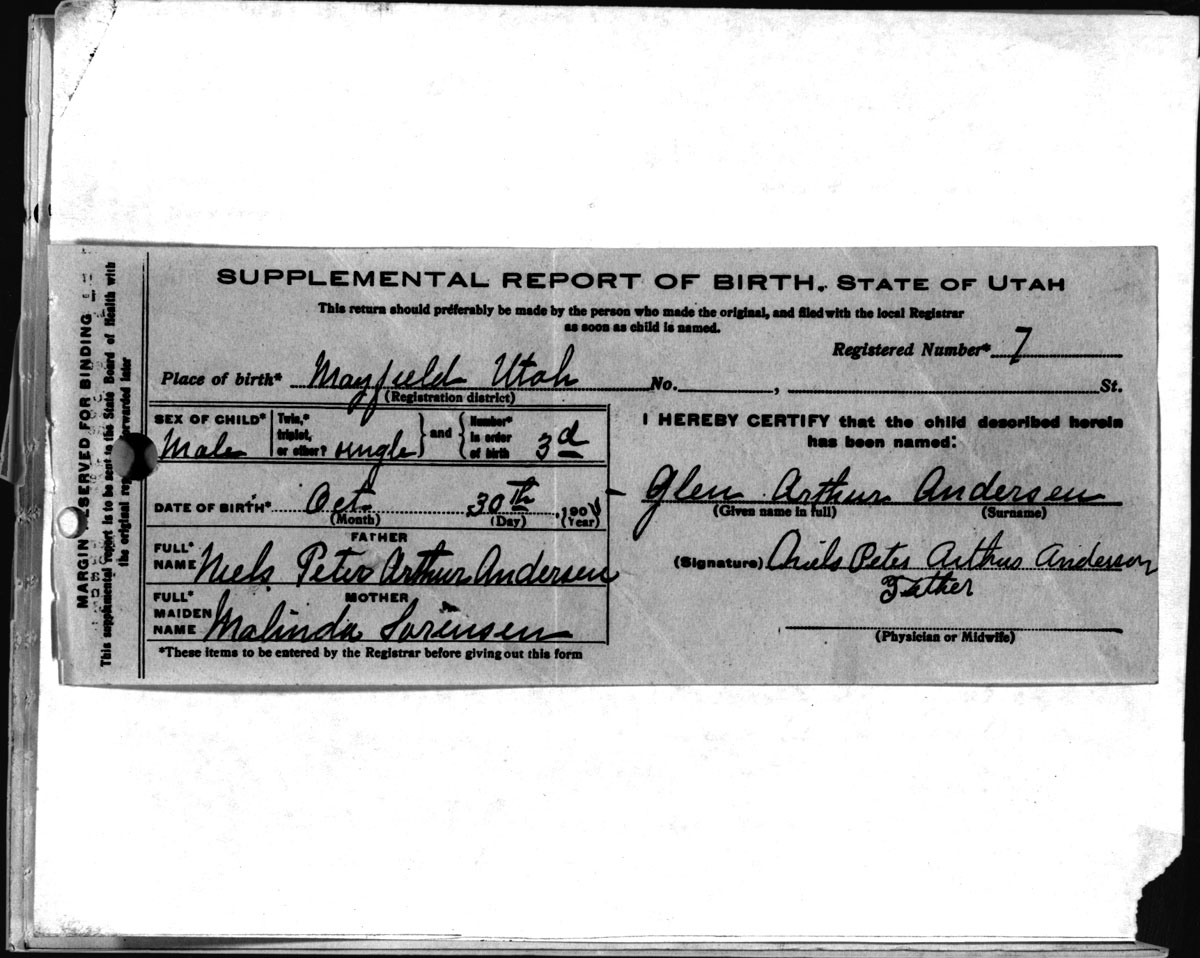 SUPPLEMENTAL REPORT OF BIRTH. STATE OF UTAH
This return should preferably be made by the person who made the original, and filed with the local Registrar
as soon as child is named.
Registered Number* 7
Place of birth* Mayfield Utah No. , St.
(Registration district)
SEX OF CHILD* Male
Twin,* triplet, or other? single } and { Number* in order of birth 3d
DATE OF BIRTH* Oct. 30th , 190
(Month) (Day) (Year)
FATHER
FULL* NAME Niels Peter Arthur Andersen
MOTHER
FULL* MAIDEN NAME Malinda Sorensen
*These items to be entered by the Registrar before giving out this form
I HEREBY CERTIFY that the child described herein
has been named:
Glen Arthur Andersen
(Given name in full) (Surname)
(Signature) Niels Peter Arthur Anderson
Father
(Physician or Midwife)
MARGIN RESERVED FOR BINDING
This supplemental report is to be sent to the State Board of Health with
the original forwarded later